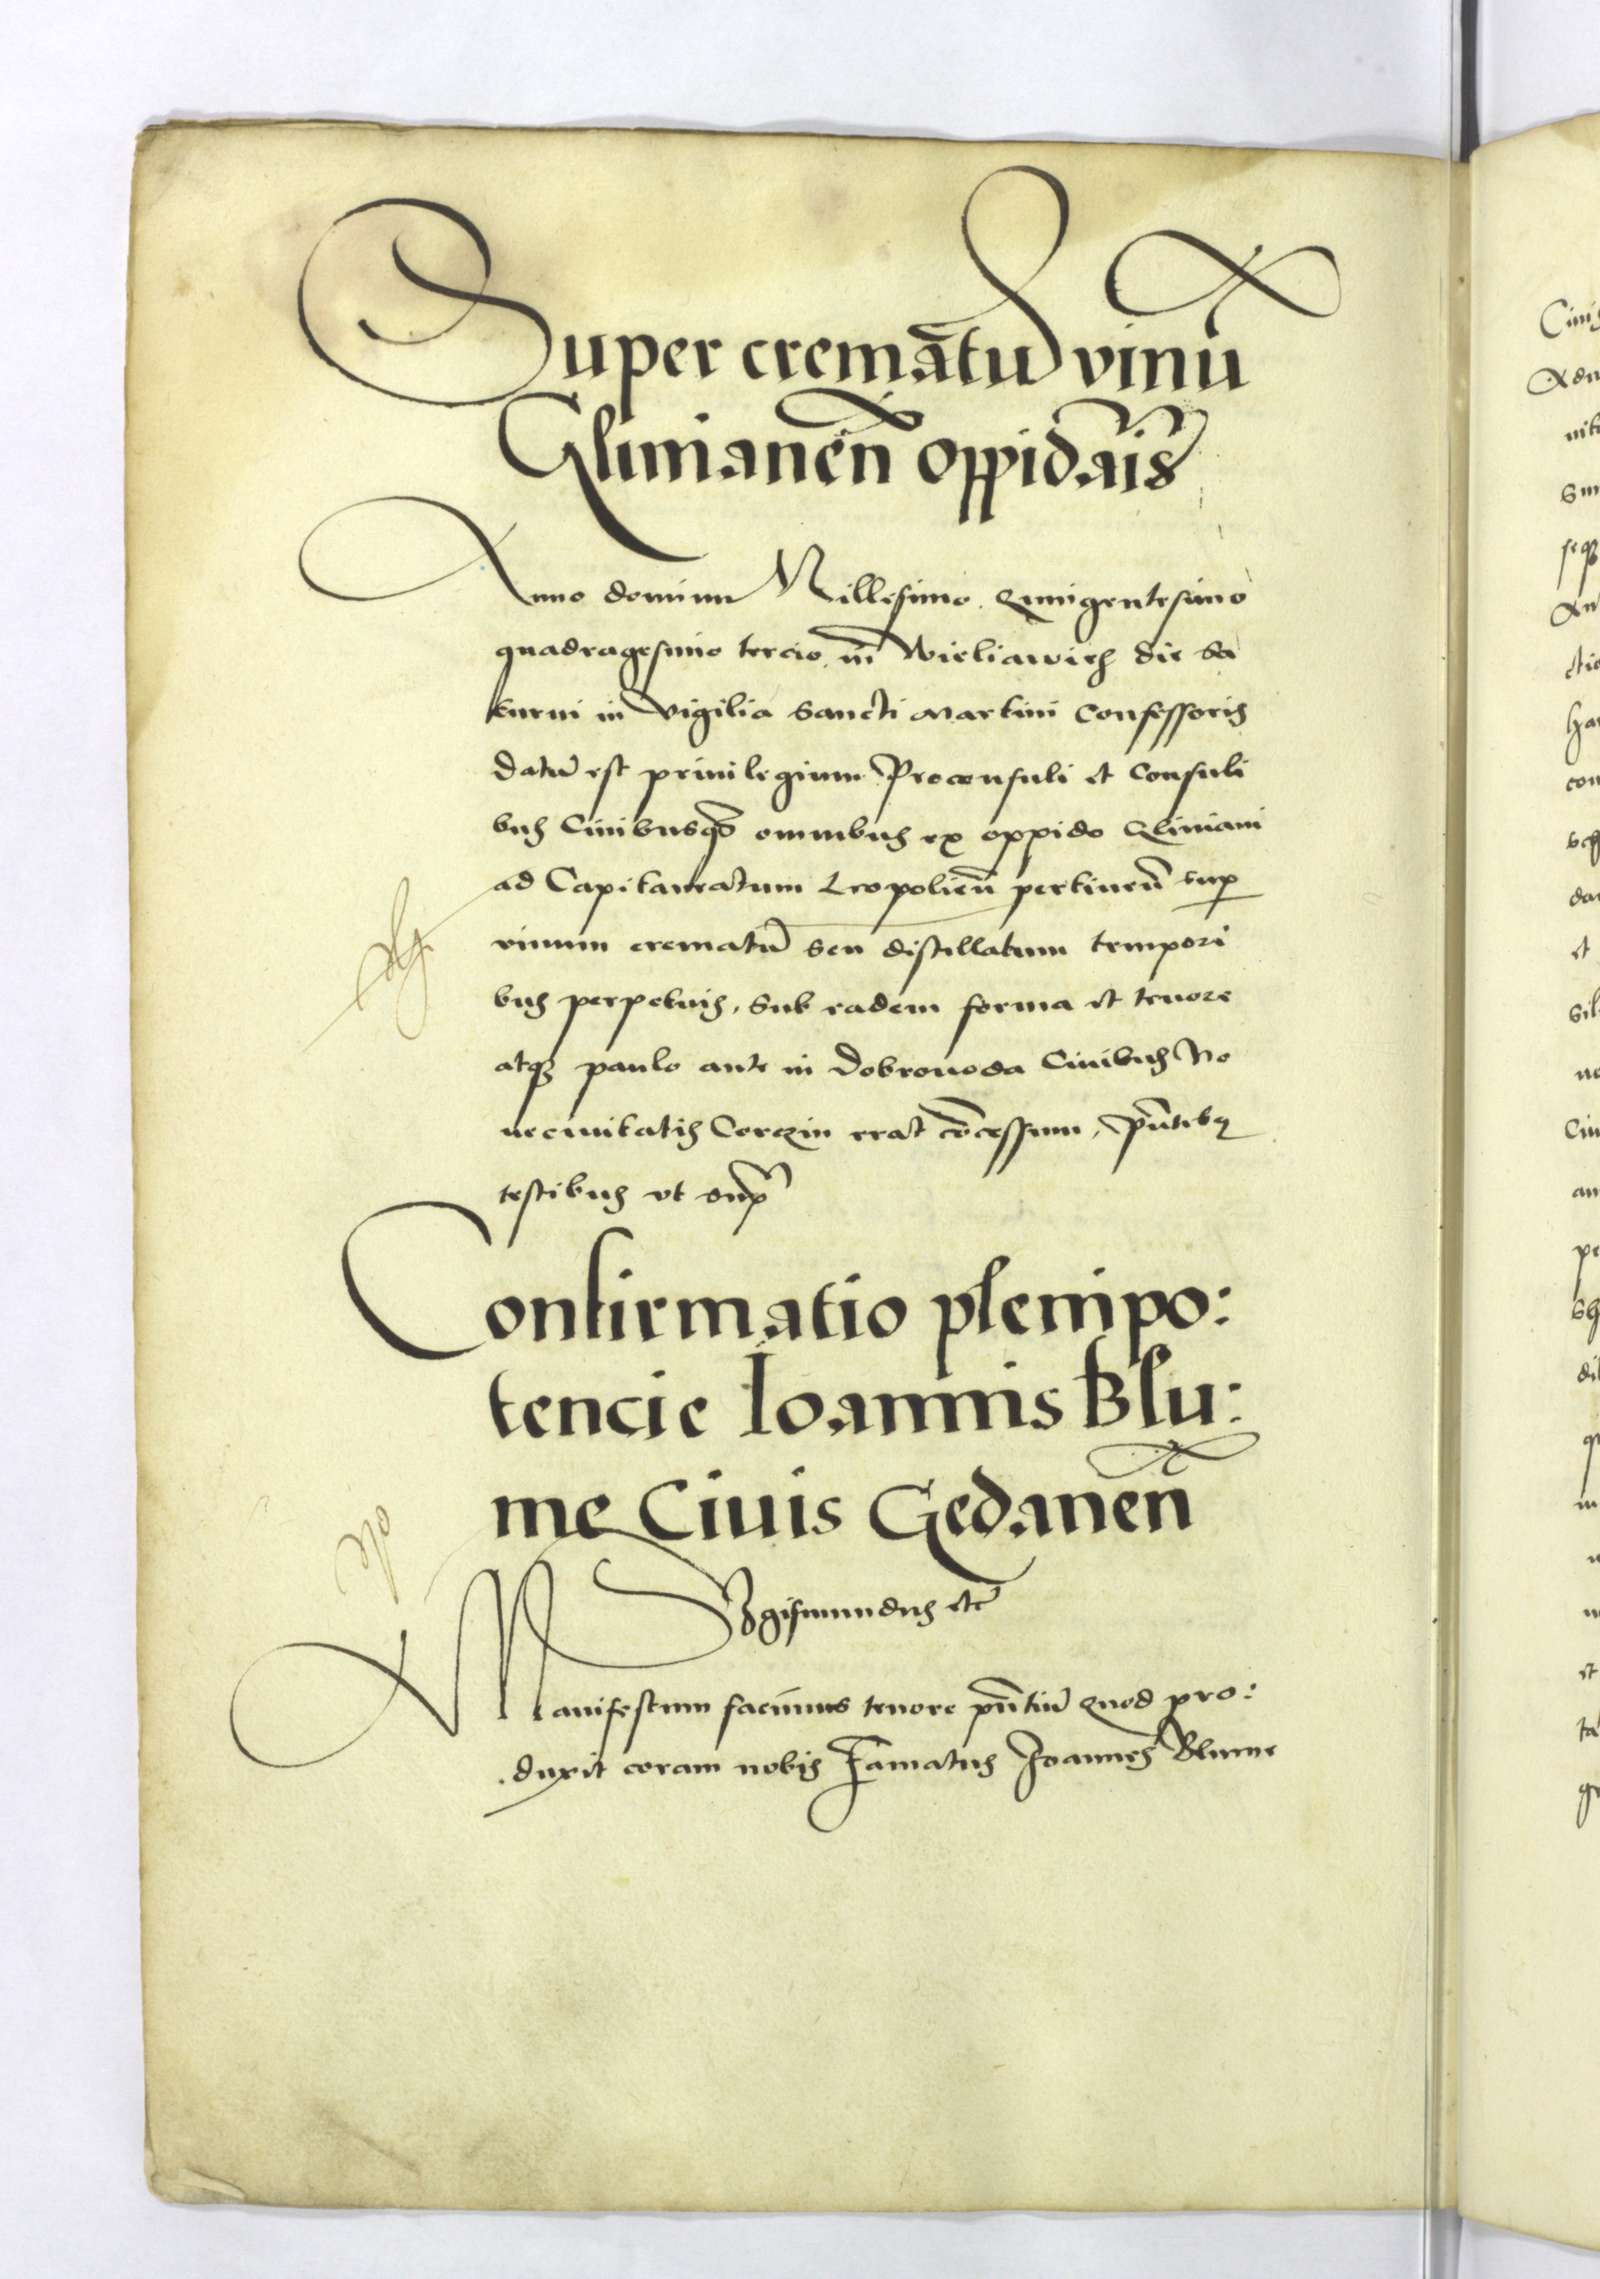 Super crematū vinū
Glinianeñ oppidanis
Anno domini Millesimo Quingentesimo
quadragesimo tercio in Wieliawieş die Sa
turni in Vigilia Sancti Martini Confessoris
datū est privilegium Proconsuli et Consuli
bus Civibusqȝ omnibus ex oppido Gliniani
ad Capitaneatum Leopolieñ pertineñ sup
vinum crematū seu distillatum tempori
bus perpetuis, sub eadem forma et tenore
atqȝ paulo ante in Dobrovoda Civibus No
vecivitatis Corczin erat cōcessum, pñtibȝ
testibus vt supᵃ
Confirmatio plenipo:
tencie Ioannis Blu:
me Civis Gedaneñ
No
Sigismundus etc
Manifestum facimus tenore pñtiū quod pro:
duxit coram nobis Famatus Joannes Blume